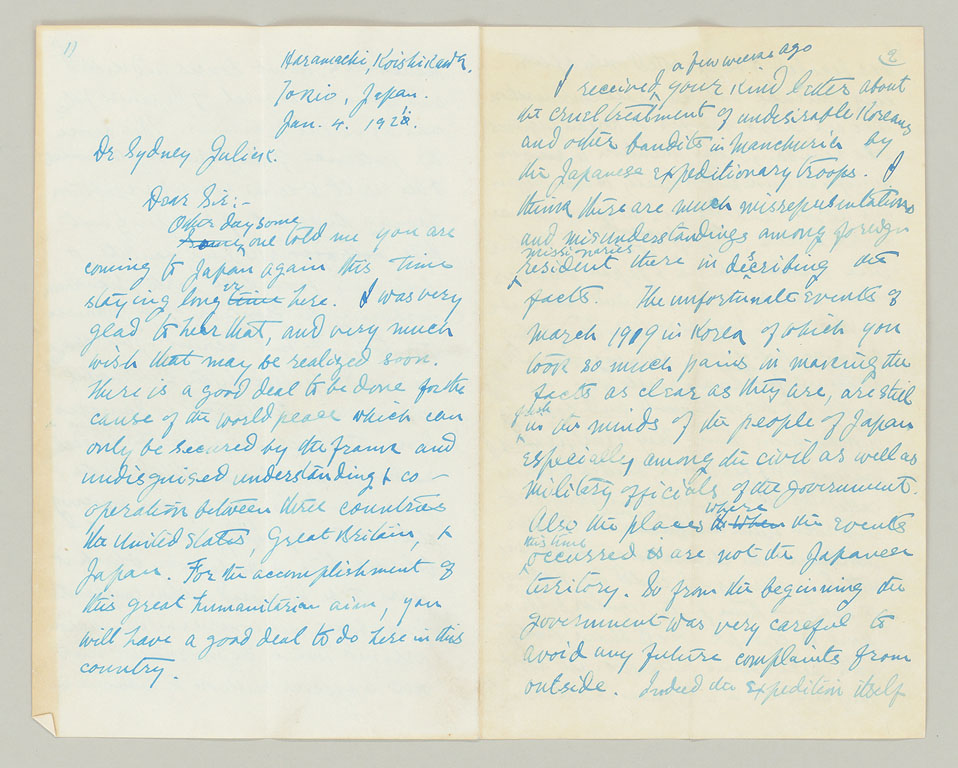 1)
Haramachi, Koishikawa.
Tokio, Japan.
Jan. 4. 192
Dr. Sydney Julick.
Dear Sir:-
Other day some
one told me you are
coming to Japan again this time
staying longer time here. I was very
glad to hear that, and very much
wish that may be realized soon.
There is a good deal to be done for the
cause of the world peace which can
only be secured by the frank and
undisguised understanding & co-
operation between three countries
the United States, Great Britain, &
Japan. For the accomplishment of
this great humanitarian aim, you
will have a good deal to do here in this
country.
2
a few weeks ago
I received, your kind letter about
the cruel treatment of undesirable Koreans
and other bandits in Manchuria by
the Japanese expeditionary troops. I
think there are much misrepresentations
and misunderstandings among foreign
missionaries
resident there in describing the
facts. The unfortunate events of
March 1919 in Korea of which you
took so much pains in making the
facts as clear as they are, are still
fresh
in the minds of the people of Japan
especially among the civil as well as
military officials of the government.
where
Also the places when the events
this time
occurred are not the Japanese
territory. So from the beginning the
government was very careful to
avoid any future complaints from
outside. Indeed the expedition itself